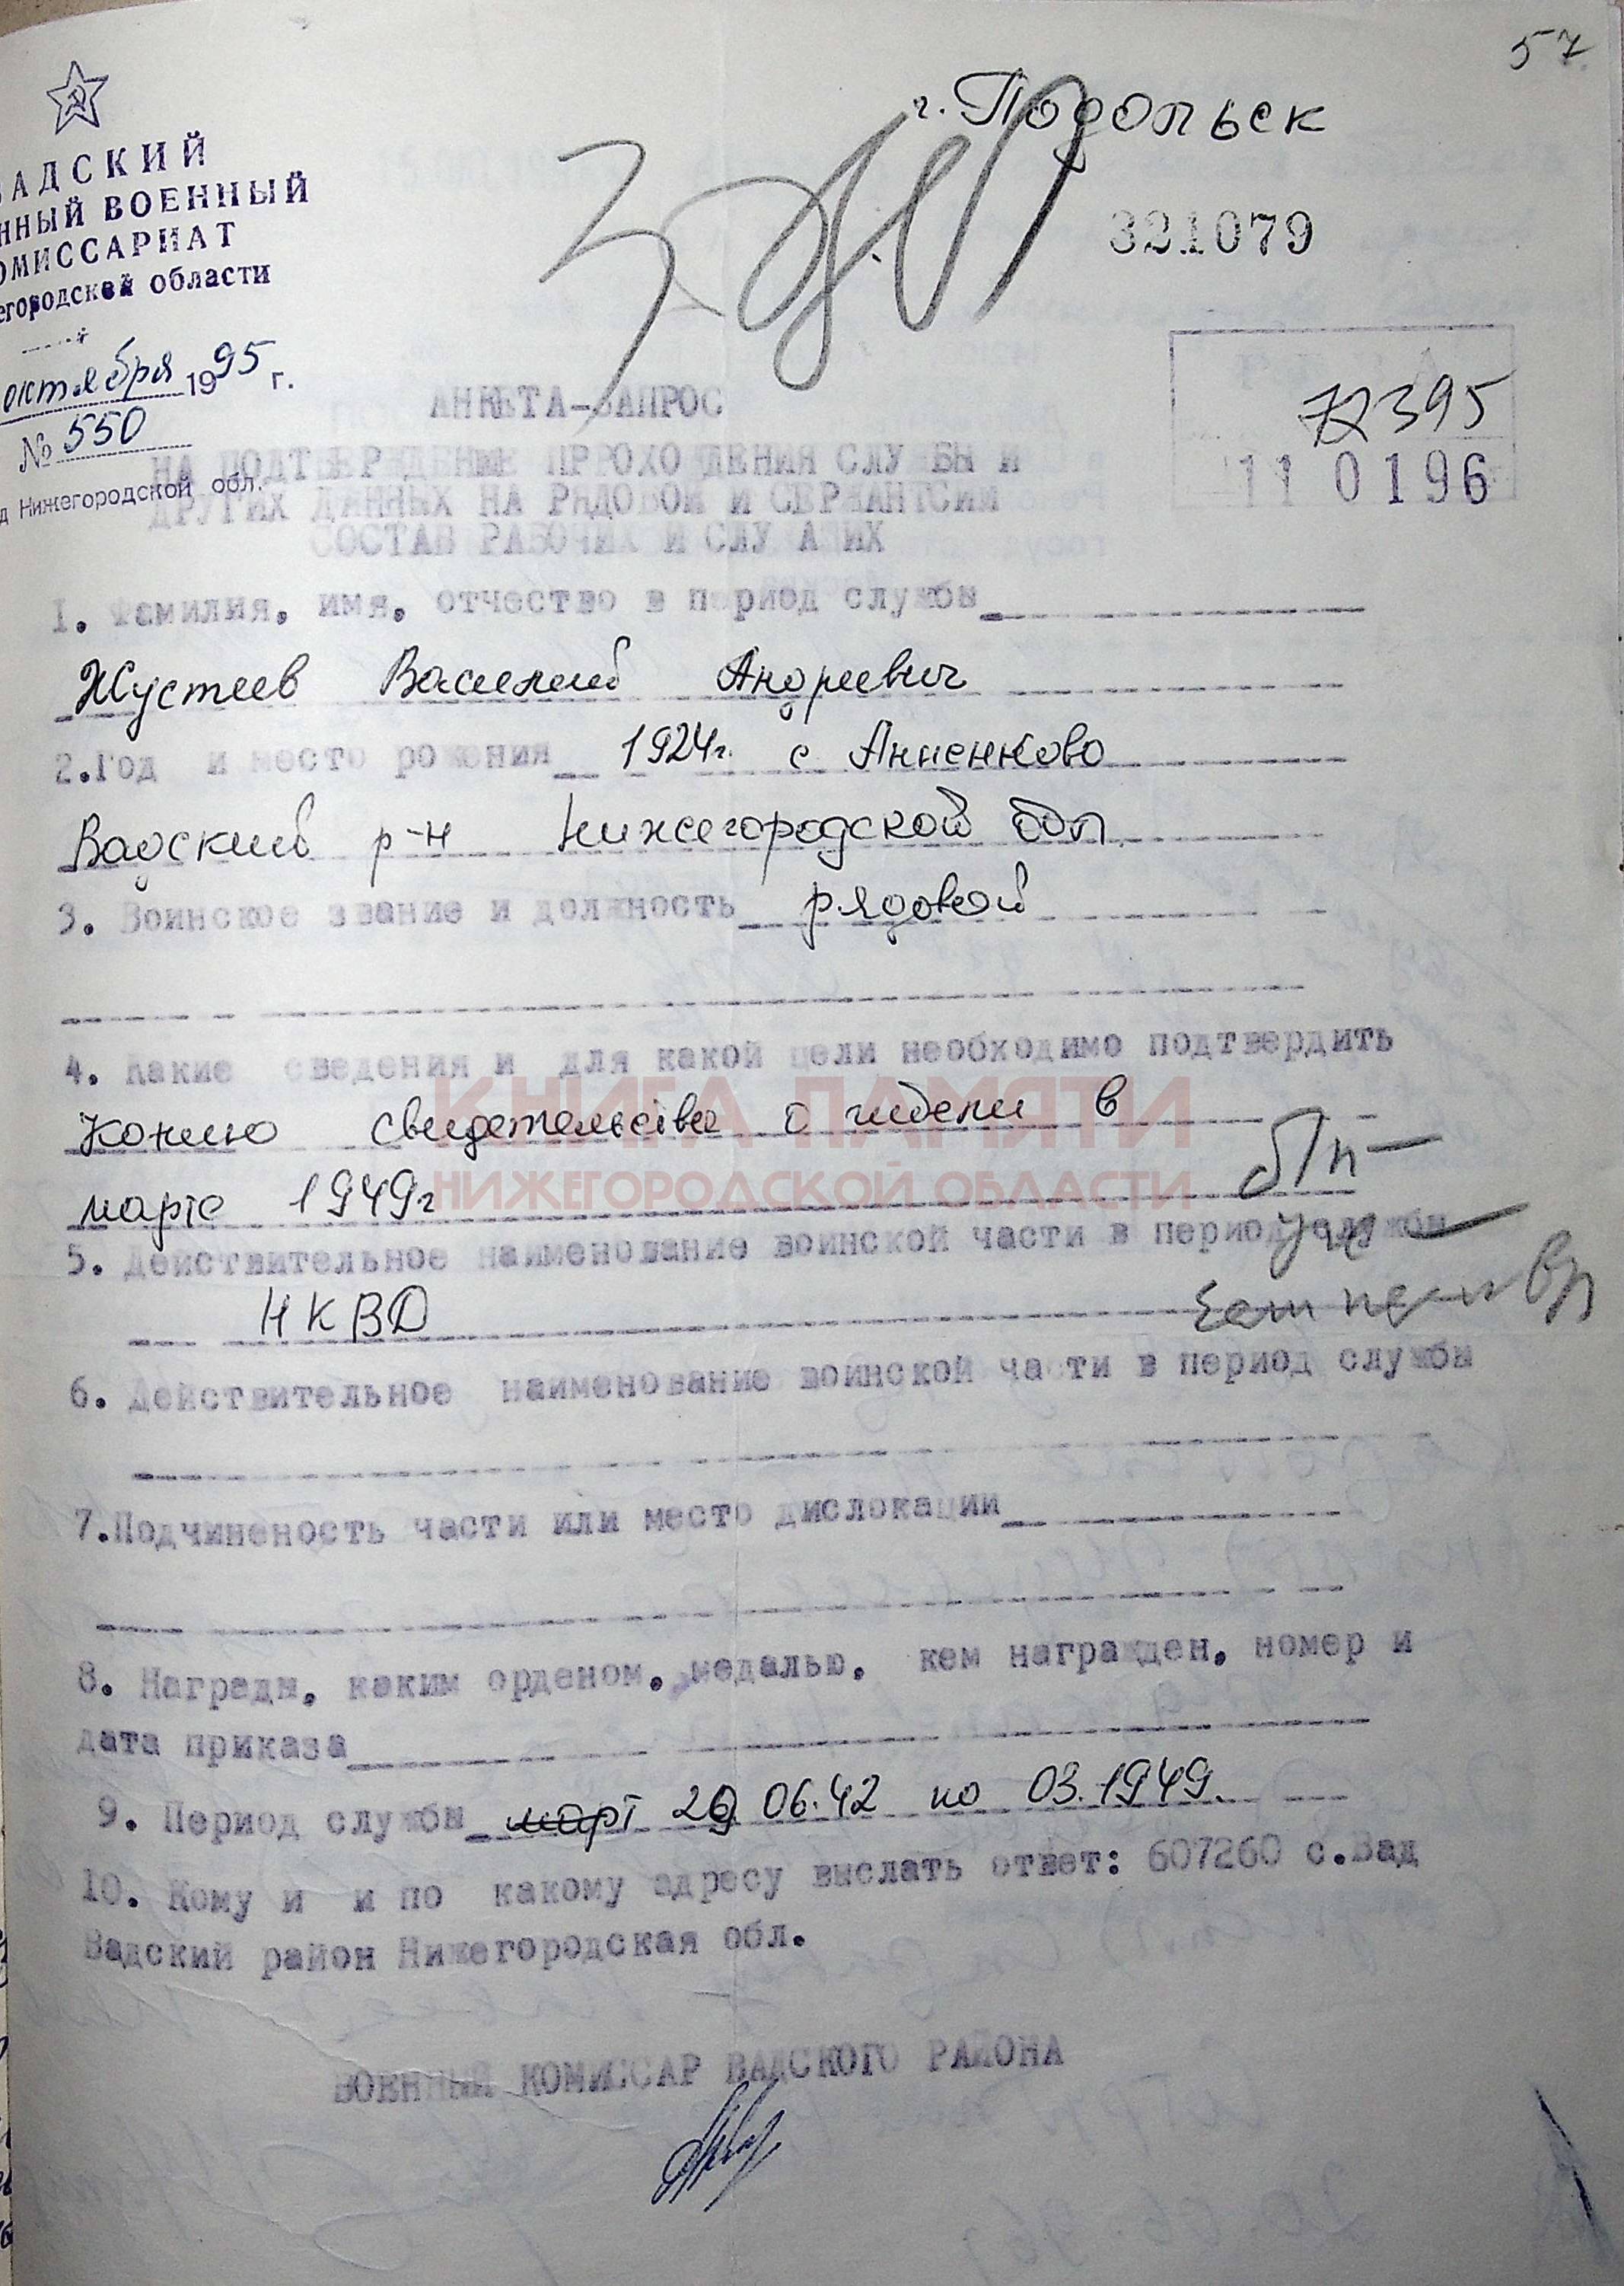 57
г. Подольск
321079
ВАДСКИЙ
ННЫЙ ВОЕННЫЙ
ОМИССАРИАТ
егородской области
октября 1995 г.
№ 550
д Нижегородской обл.
72395
11 0196
АНКЕТА-ЗАПРОС
НА ПОДТВЕРЖДЕНИЕ ПРОХОЖДЕНИЯ СЛУЖБЫ И
ДРУГИХ ДАННЫХ НА РЯДОВОЙ И СЕРЖАНТСКИЙ
СОСТАВ РАБОЧИХ И СЛУЖАЩИХ
1. Фамилия, имя, отчество в период службы
Жустеев Василий Андреевич
2.Год и место рожения 1924г. с Анненково
Вадский р-н Нижегородской обл.
3. Воинское звание и должность рядовой
4. Какие сведения и для какой цели необходимо подтвердить
Копию свидетельства о гибели в
марте 1949г
КНИГА ПАМЯТИ
НИЖЕГОРОДСКОЙ ОБЛАСТИ
5. Действительное наименование воинской части в период службы
НКВД
6. Действительное наименование воинской части в период службы
7.Подчиненость части или место дислокации
8. Награды, каким орденом, медалью, кем награжден, номер и
дата приказа
9. Период службы март 29 06.42 по 03.1949.
10. Кому и и по какому адресу выслать ответ: 607260 с.Вад
Вадский район Нижегородская обл.
ВОЕННЫЙ КОМИССАР ВАДСКОГО РАЙОНА